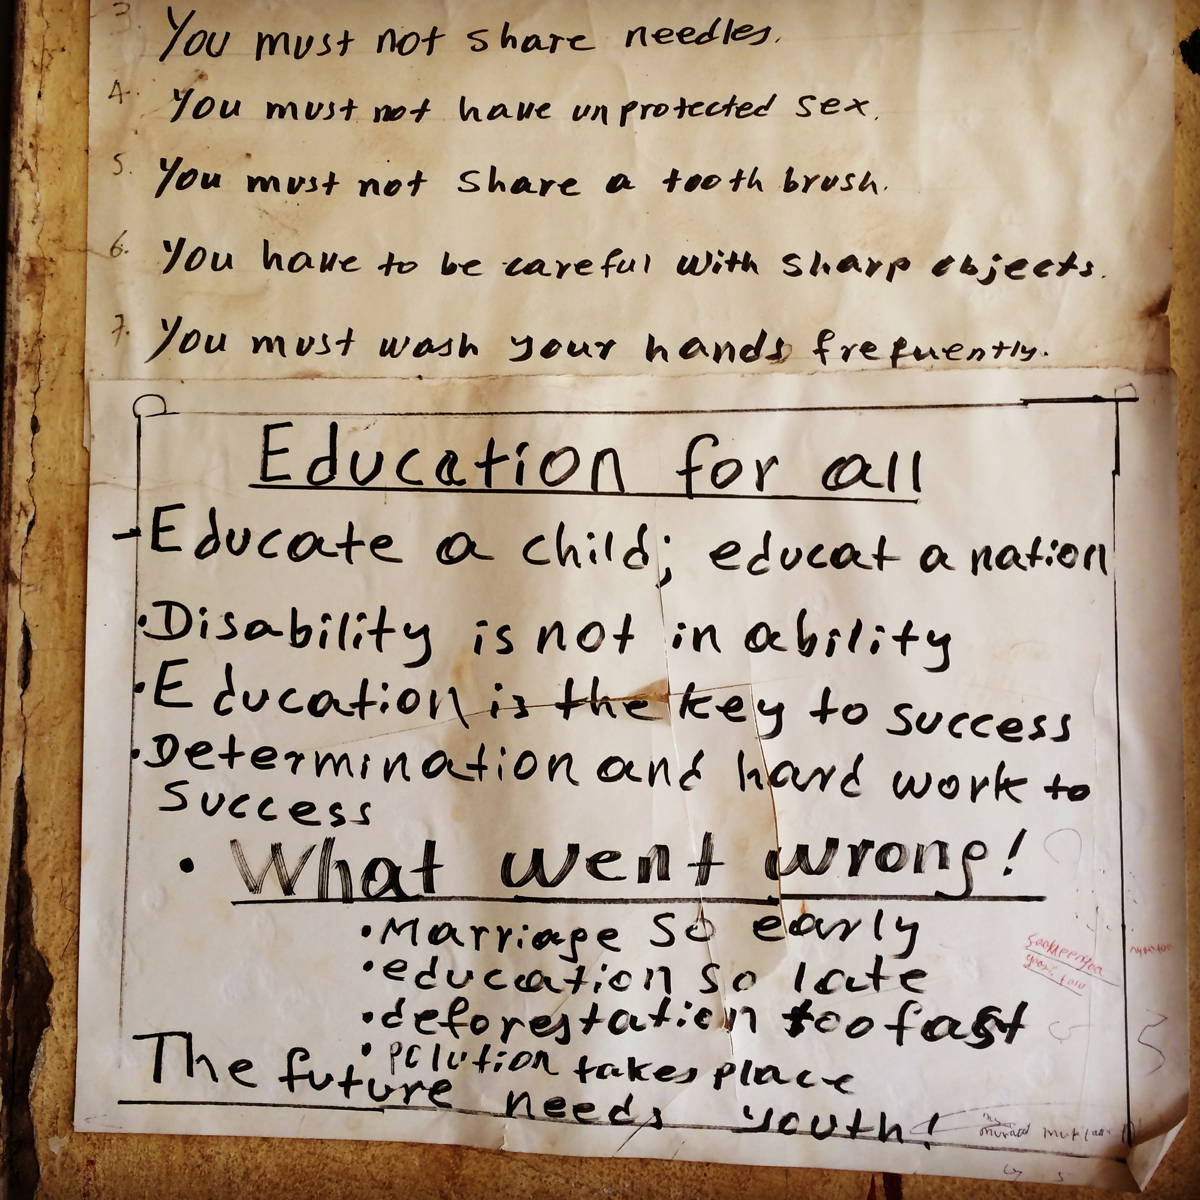 3. You must not share needles.
4. You must not have unprotected sex.
5. You must not share a tooth brush.
6. You have to be careful with sharp objects.
7. You must wash your hands frequently.
Education for all
- Educate a child; educat a nation
• Disability is not in ability
• Education is the key to success
• Determination and hard work to
success
• What went wrong!
• Marriage so early
• education so late
• deforestation too fast
• polution takes place
The future needs youth!